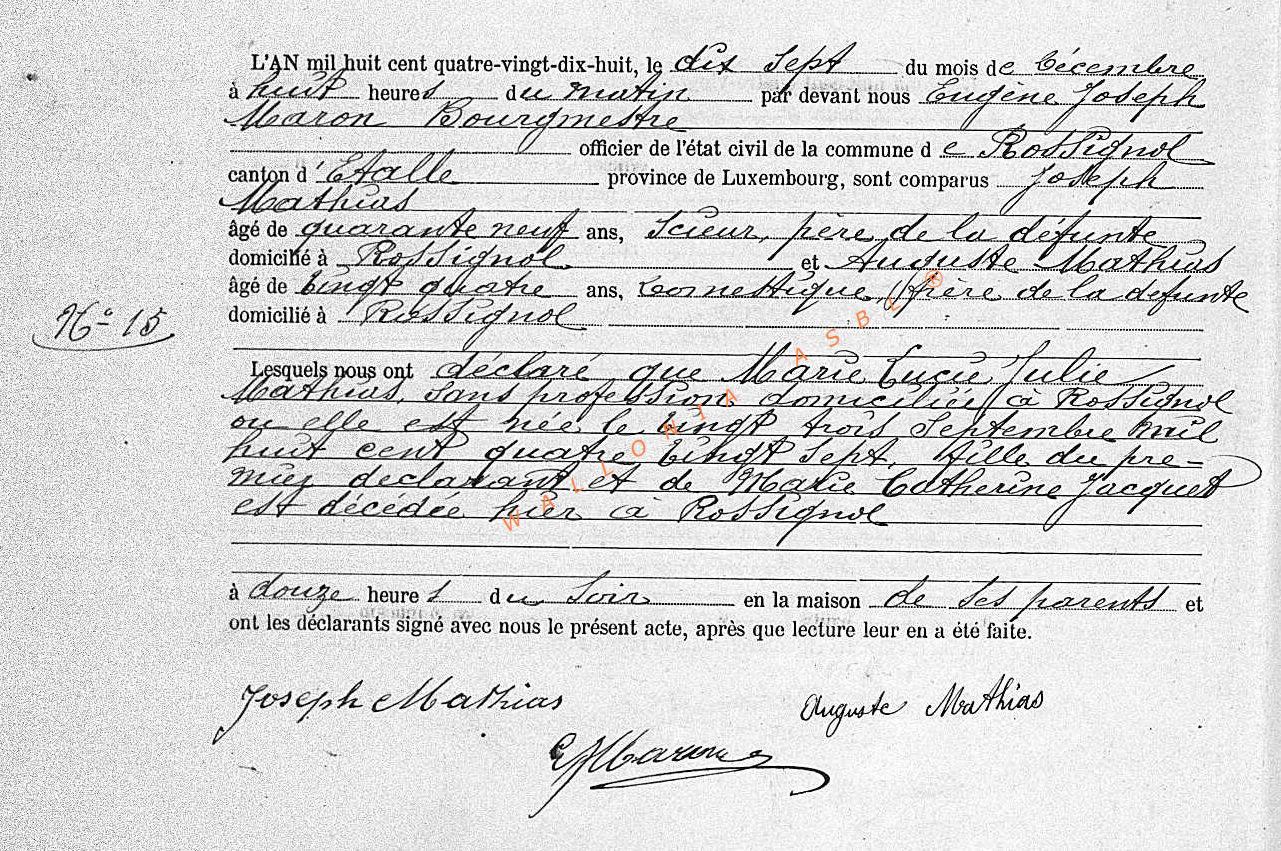 L'AN mil huit cent quatre-vingt-dix-huit, le dix sept du mois de Décembre
à huit heures du matin par devant nous Eugène Joseph
Maron Bourgmestre
officier de l'état civil de la commune de Rossignol
canton d'Etalle province de Luxembourg, sont comparus Joseph
Mathias
âgé de quarante neuf ans, Scieur, père de la défunte
domicilié à Rossignol et Auguste Mathias
âgé de vingt quatre ans, Domestique, frère de la defunte
N° 15
domicilié à Rossignol
Lesquels nous ont déclaré que Marie Lucie Julie
Mathias, sans profession domiciliée à Rossignol
ou elle est née le vingt trois Septembre mil
huit cent quatre vingt sept, fille du pre-
mier declarant et de Marie Catherine Jacquet
est décédée hier à Rossignol
à douze heures du soir en la maison de ses parents et
ont les déclarants signé avec nous le présent acte, après que lecture leur en a été faite.
Joseph Mathias Auguste Mathias
EJMaron
WALLONIA ASBL ®